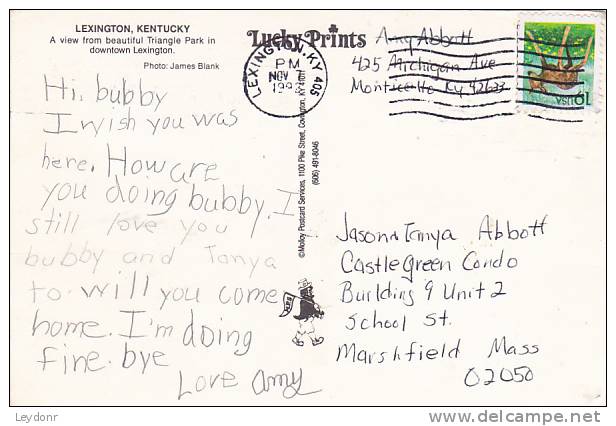 LEXINGTON, KENTUCKY
A view from beautiful Triangle Park in
downtown Lexington.
Photo: James Blank
Hi. bubby
I wish you was
here. How are
you doing bubby. I
still love you
bubby and Tanya
to. will you come
home. I'm doing
fine. bye
Love amy
Lucky Prints
©Molloy Postcard Services, 1100 Pike Street, Covington, KY 41011
(606) 491-8046
LEXINGTON, KY 405
PM
NOV
Amy Abbott
425 Michigan Ave
Monticello Ky 42633
19 USA
Jason & Tanya Abbott
Castle Green Condo
Building 9 Unit 2
School St.
Marshfield Mass
02050
Leydonr
delcampe.net